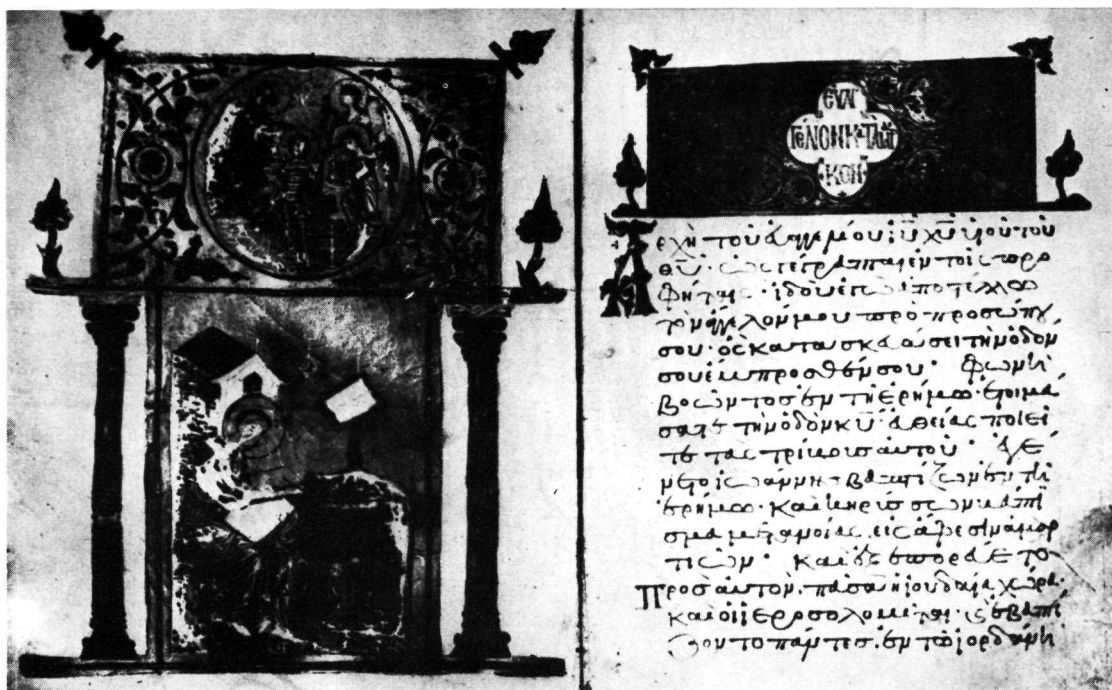 ΕΥΑΓ
ΓΕΛΙΟΝ Κ ΤΑ ΜΑΡ
ΚΟΝ
Ἀρχὴ τοῦ εὐαγγελίου ἰῦ χῦ υἱοῦ τοῦ
θῦ· ὡς γέγραπται ἐν τοῖς προ
φήταις· ἰδοὺ ἐγὼ ἀποστέλλω
τὸν ἄγγελόν μου πρὸ προσώπου
σου· ὃς κατασκευάσει τὴν ὁδόν
σου ἔμπροσθέν σου· φωνὴ
βοῶντος ἐν τῇ ἐρήμω· ἑτοιμά
σατε τὴν ὁδὸν κῦ· εὐθείας ποιεῖ
τε τὰς τρίβους αὐτοῦ· ἐγέ
νετο ἰωάννης βαπτίζων ἐν τῇ
ἐρήμω· καὶ κηρύσσων βάπτι
σμα μετανοίας εἰς ἄφεσιν ἁμαρ
τιῶν· καὶ ἐξεπορεύετο
πρὸς αὐτὸν πᾶσα ἡ ἰουδαία χώρα·
καὶ οἱ ἱεροσολυμῖται· καὶ ἐβαπτί
ζοντο πάντες ἐν τῶ ἰορδάνῃ